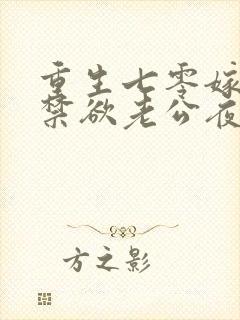 重生七零嫁
禁欲老公夜
方之影